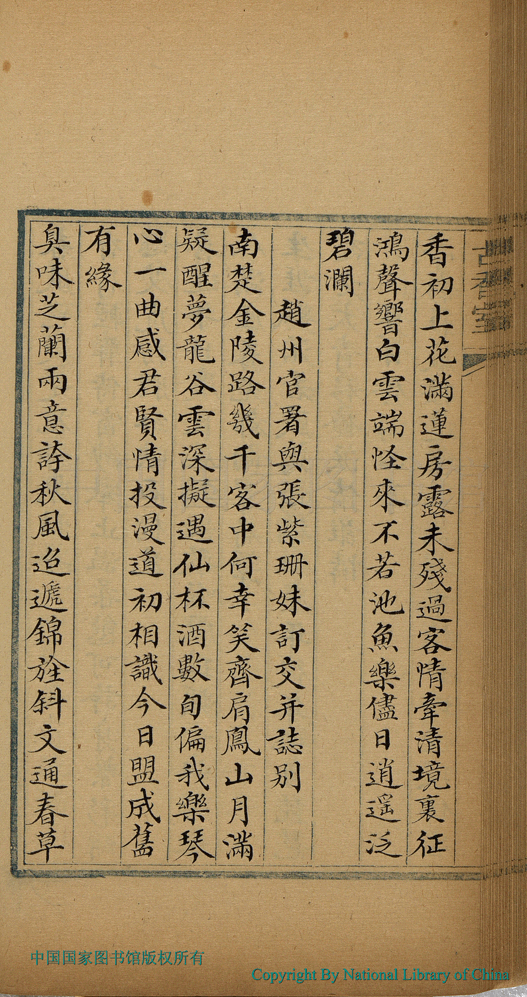 古香室
香初上花滿蓮房露未殘過客情牽清境裏征
鴻聲響白雲端怪來不若池魚樂儘日逍遥泛
碧瀾
趙州官署與張紫珊妹訂交并誌别
南楚金陵路幾千客中何幸笑齊肩鳳山月滿
疑醒夢龍谷雲深擬遇仙杯酒數旬偏我樂琴
心一曲感君賢情投漫道初相識今日盟成舊
有緣
臭味芝蘭兩意誇秋風迢遞錦旌斜文通春草
中国国家图书馆版权所有
Copyright By National Library of China